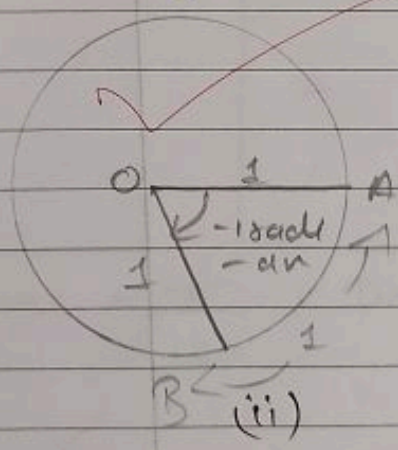 O 1 A
-1 radi
-an
1
1
B
(ii)